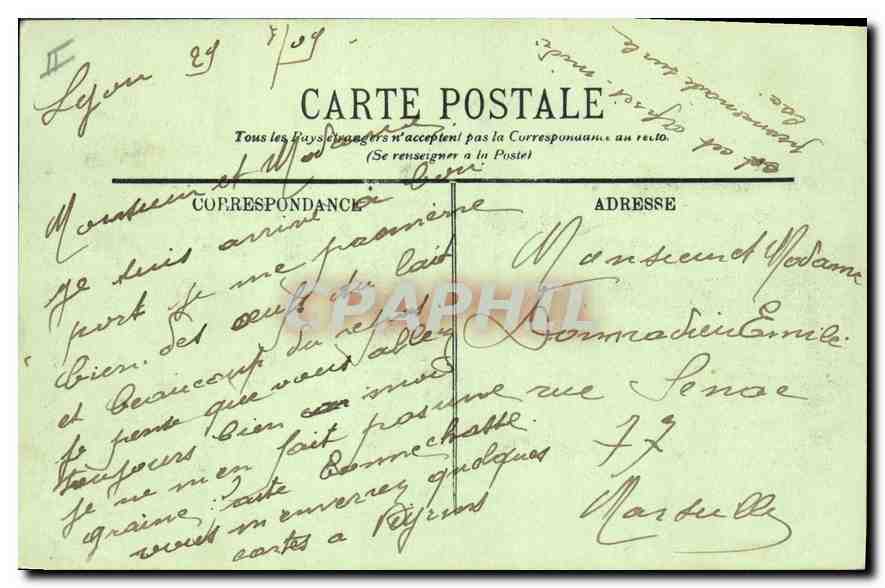 II
Lyon 29 /09
CARTE POSTALE
Tous les Pays étrangers n'acceptent pas la Correspondance au recto.
(Se renseigner a la Poste)
CORRESPONDANCE
Monsieur et Madame
je suis arrivé a bon
port je me promène
bien. des œufs du lait
et beaucoup du repos.
je pense que vous allez
toujours bien moi
je ne m'en fait pas une
graine
vous m'enverrez quelques
cartes a
promenade sur le
ADRESSE
Monsieur et Madame
Donnadieu Emile
rue Senac
77
Marseille
CPAPHIL